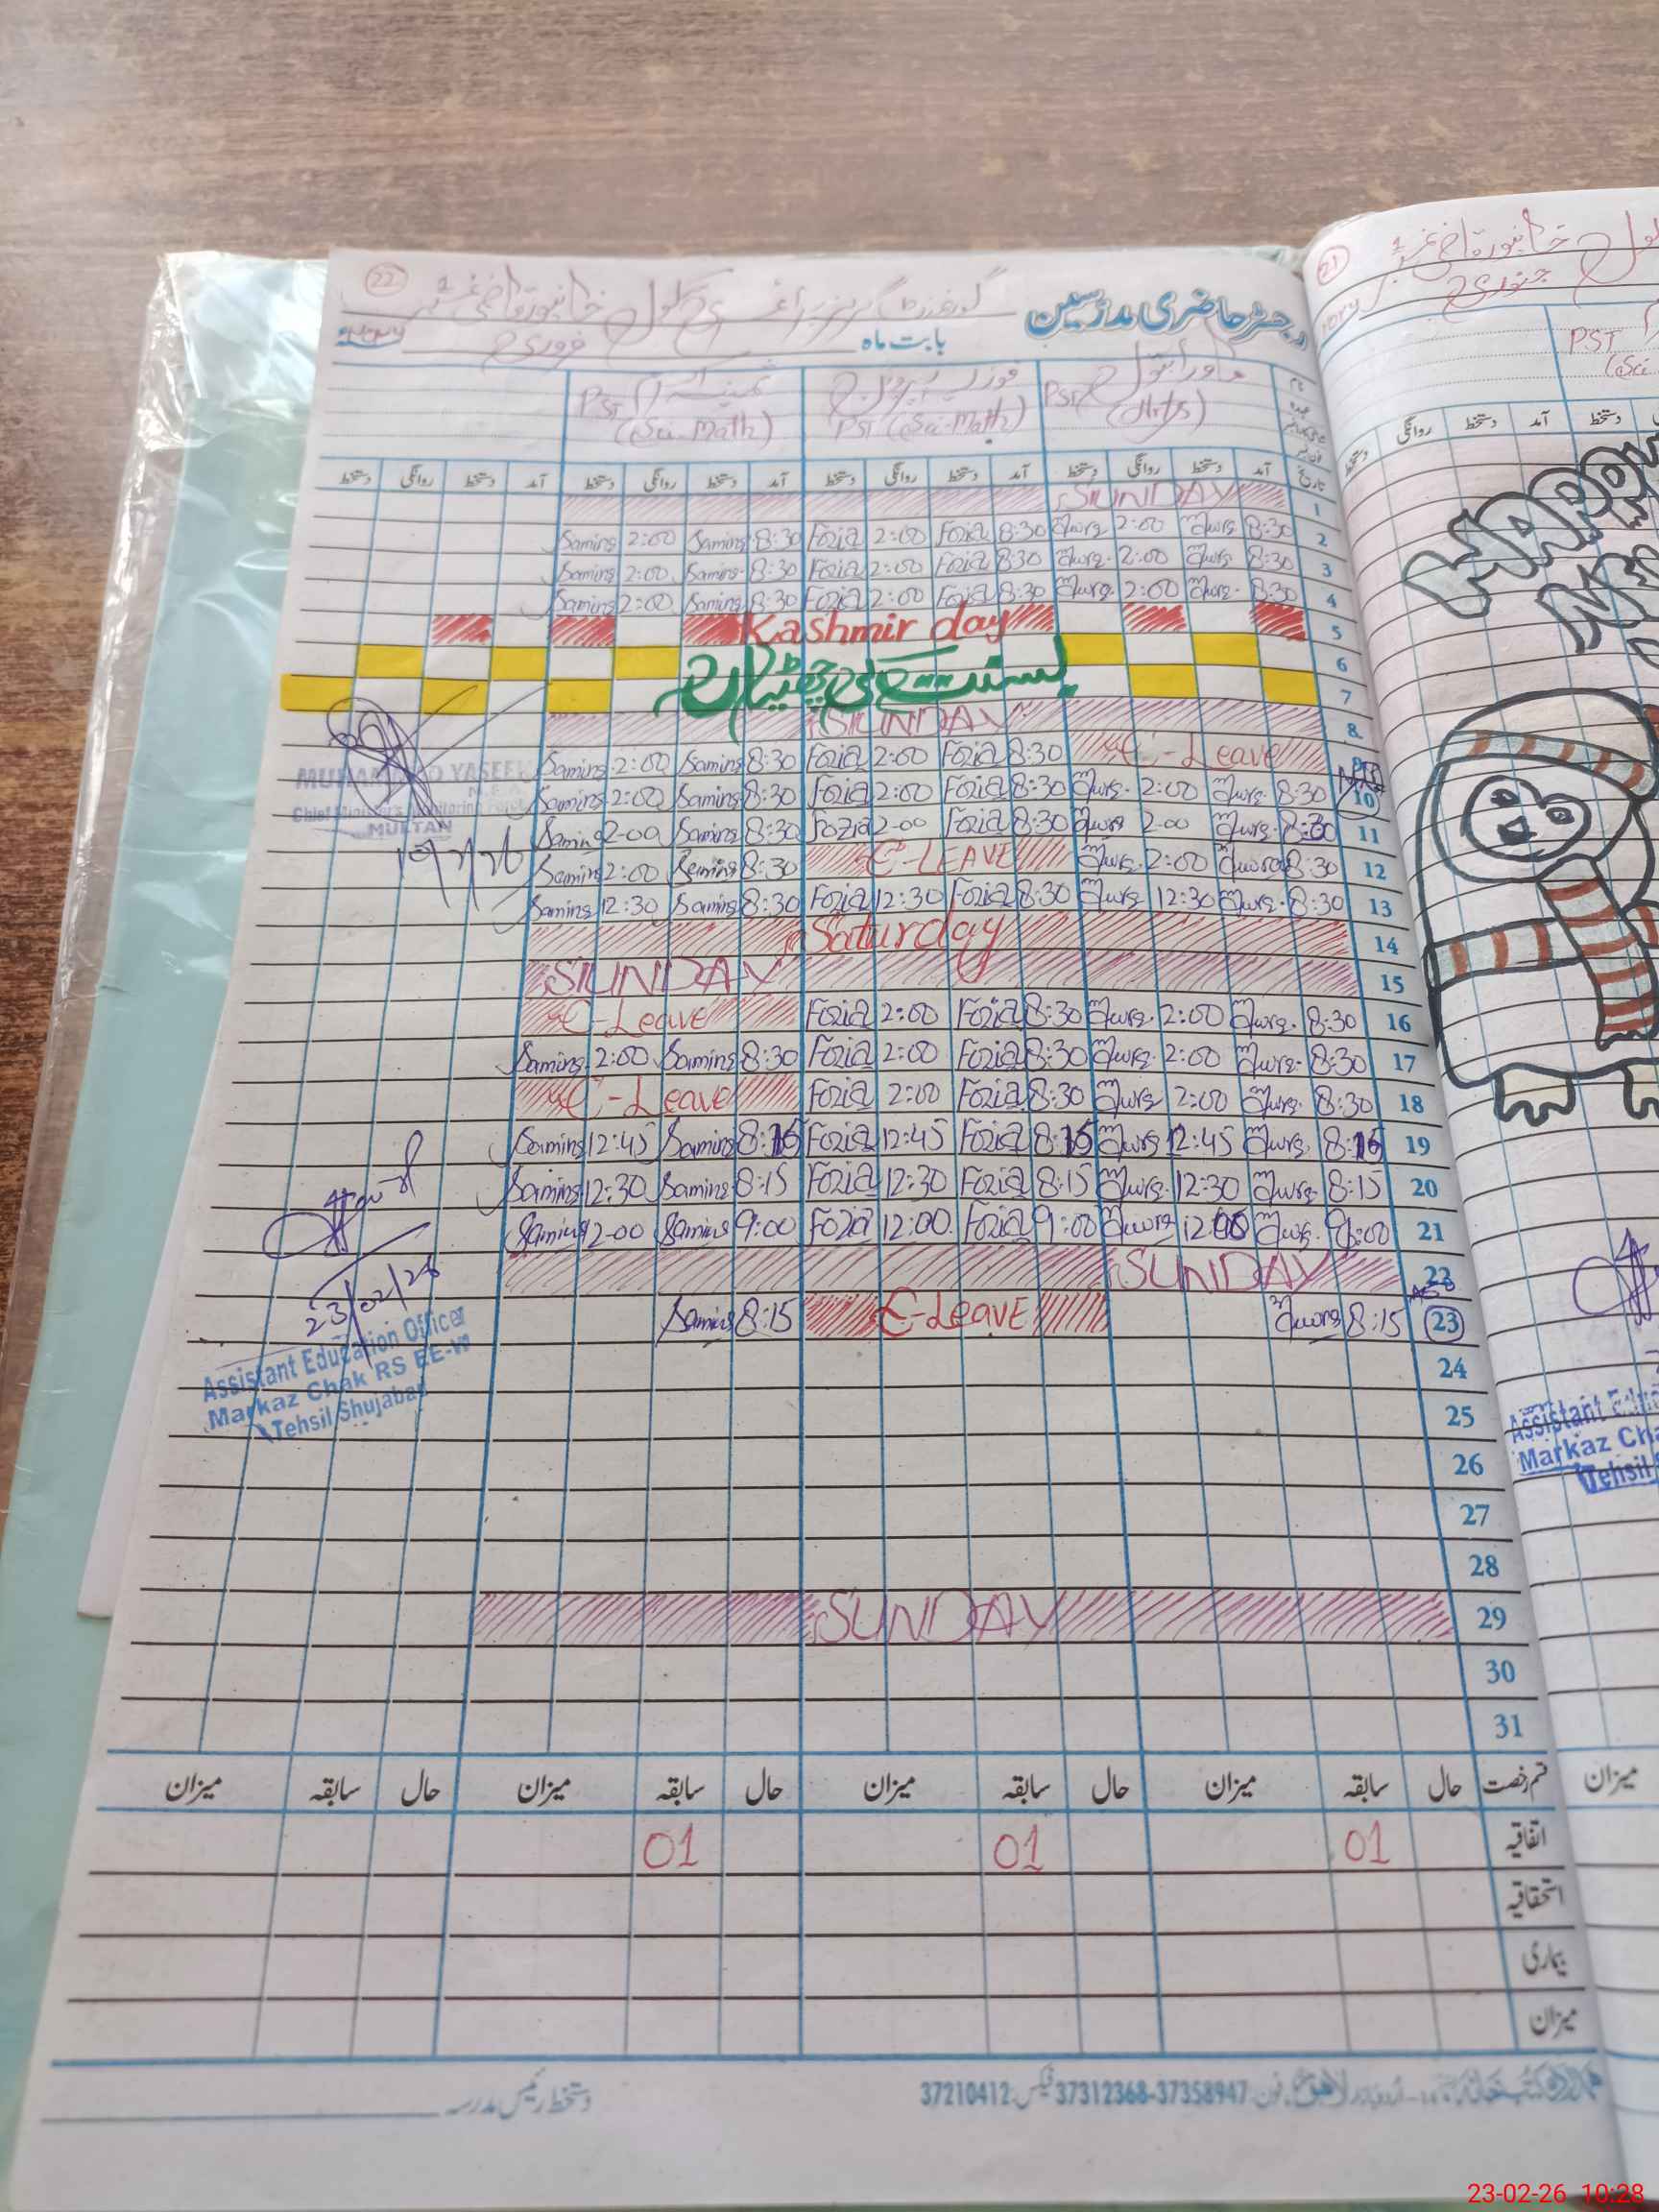 22
گورنمنٹ گرلز پرائمری سکول خانپور قاضی نمبر 1
رجسٹر حاضری مدرسین
بابت ماہ فروری
PST (Arts)
فوزیہ بتول PST (Sci-Math)
ثمینہ اکرم PST (Sci-Math)
تاریخ آمد دستخط روانگی دستخط آمد دستخط روانگی دستخط آمد دستخط روانگی دستخط آمد دستخط روانگی دستخط
1 SUNDAY
2 8:30 2:00 8:30 Fozia 2:00 Fozia 8:30 Samina 2:00 Samina
3 8:30 2:00 8:30 Fozia 2:00 Fozia 8:30 Samina 2:00 Samina
4 8:30 2:00 8:30 Fozia 2:00 Fozia 8:30 Samina 2:00 Samina
5 Kashmir day
6
7 بسنت کی چھٹیاں
8 SUNDAY
9 C-Leave 8:30 Fozia 2:00 Fozia 8:30 Samina 2:00 Samina
10 8:30 2:00 8:30 Fozia 2:00 Fozia 8:30 Samina 2:00 Samina
11 8:30 2-00 8:30 Fozia 2-00 Fozia 8:30 Samina 2-00 Samina
12 8:30 2:00 C-LEAVE 8:30 Samina 2:00 Samina
13 8:30 12:30 8:30 Fozia 12:30 Fozia 8:30 Samina 12:30 Samina
14 Saturday
15 SUNDAY
16 8:30 2:00 8:30 Fozia 2:00 Fozia C-Leave
17 8:30 2:00 8:30 Fozia 2:00 Fozia 8:30 Samina 2:00 Samina
18 8:30 2:00 8:30 Fozia 2:00 Fozia C-Leave
19 8:15 12:45 8:15 Fozia 12:45 Fozia 8:15 Samina 12:45 Samina
20 8:15 12:30 8:15 Fozia 12:30 Fozia 8:15 Samina 12:30 Samina
21 9:00 12:00 9:00 Fozia 12:00 Fozia 9:00 Samina 12-00 Samina
22 SUNDAY
23 8:15 C-LEAVE 8:15 Samina
24
25
26
27
28
29 SUNDAY
30
31
MUHAMMAD YASEEN
M.E.A
Chief Minister's Monitoring Force
MULTAN
23/02/26
Assistant Education Officer
Markaz Chak RS EE-W
Tehsil Shujabad
قسم رخصت حال سابقہ میزان حال سابقہ میزان حال سابقہ میزان حال سابقہ میزان
اتفاقیہ 01 01 01
استحقاقیہ
بیماری
میزان
اردو بازار لاہور فون: 37312368-37358947 فیکس: 37210412
دستخط رئیس مدرسہ
21
جنوری
PST
(Sci
دستخط روانگی دستخط آمد دستخط
HAPPY
NE
Assistant Edu
Markaz Cha
Tehsil
میزان
23-02-26 10:28